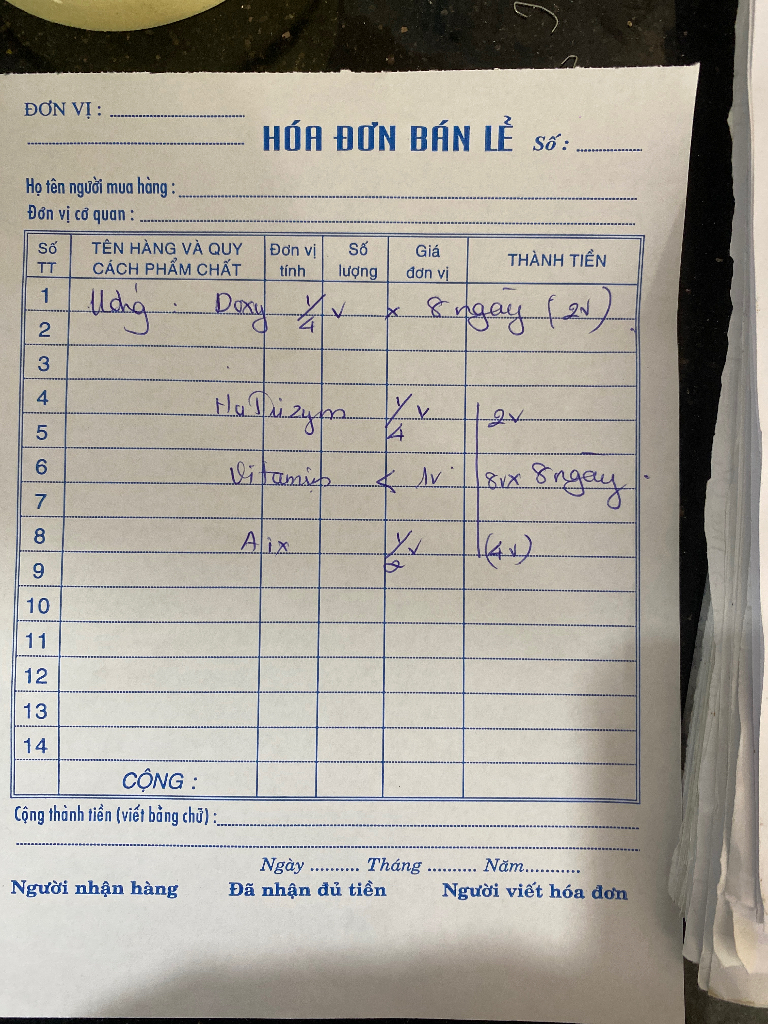 ĐƠN VỊ :
HÓA ĐƠN BÁN LẺ Số :
Họ tên người mua hàng :
Đơn vị cơ quan :
Số TT TÊN HÀNG VÀ QUY CÁCH PHẨM CHẤT Đơn vị tính Số lượng Giá đơn vị THÀNH TIỀN
1 Uống . Doxy 1/4 v x 8 ngày (2v)
2
3
4 HaDizym 1/4 v 2v
5
6 Vitamin < 1v 8v x 8 ngày
7
8 Aix 1/2 v (4v)
9
10
11
12
13
14
CỘNG :
Cộng thành tiền (viết bằng chữ) :
Ngày .......... Tháng .......... Năm...........
Người nhận hàng Đã nhận đủ tiền Người viết hóa đơn